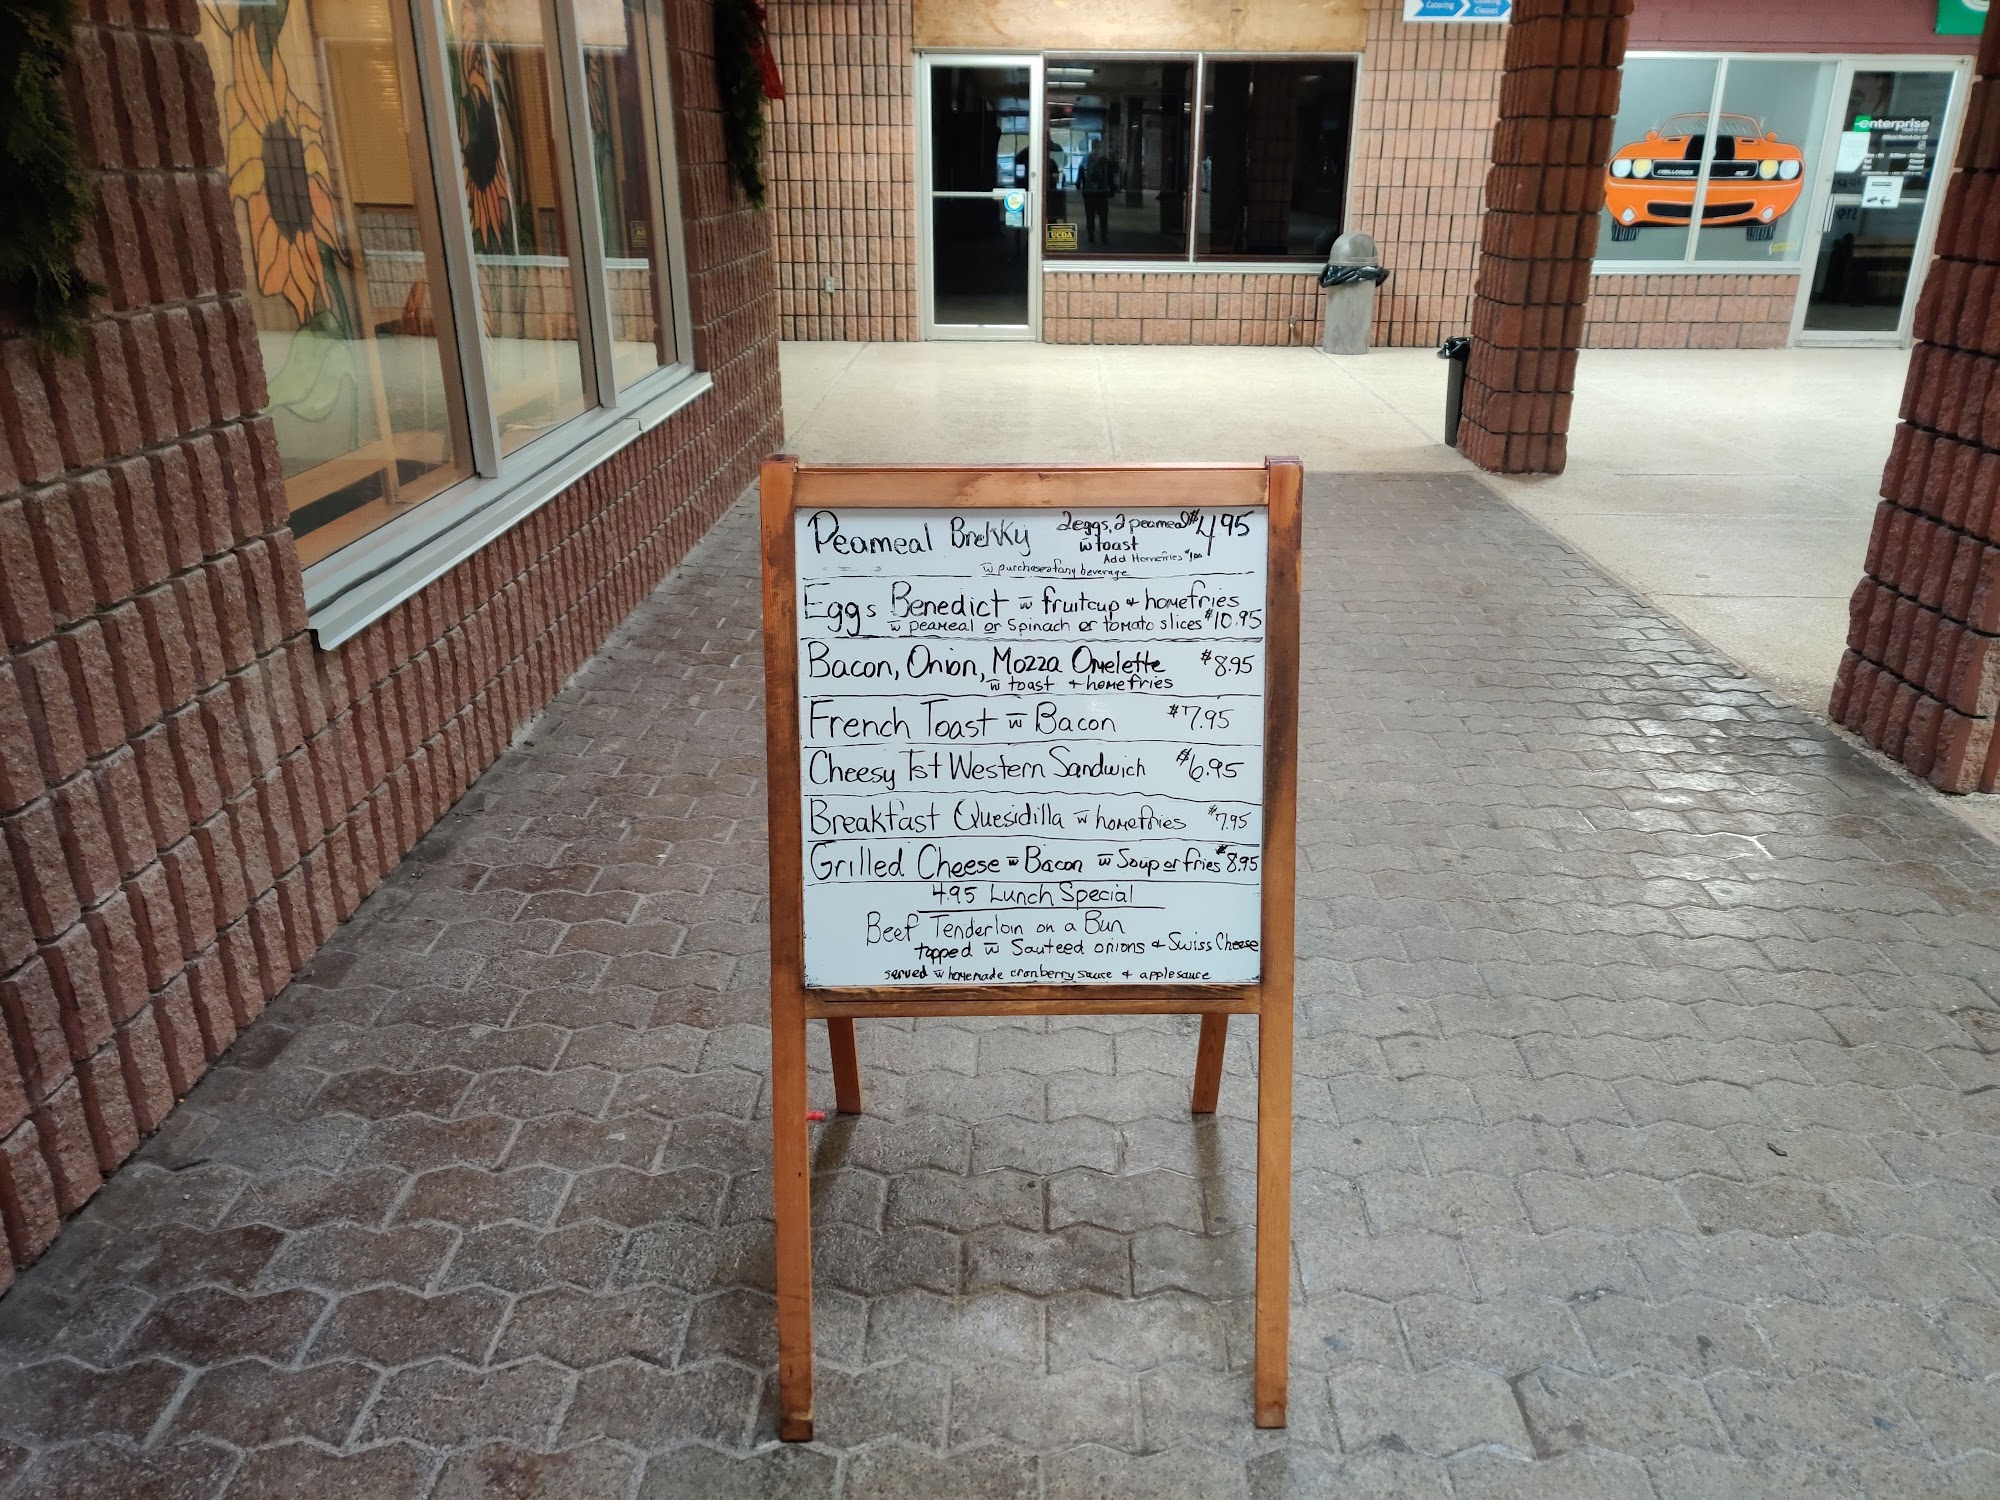 Catering
Cooking
Classes
enterprise
CHALLENGER
UCDA
Peameal Brekky 2 eggs, 2 peameal $4.95
w̄ toast
Add Homefries $1.00
w̄ purchase of any beverage
Eggs Benedict w̄ fruitcup + homefries
w̄ peameal or Spinach or tomato slices $10.95
Bacon, Onion, Mozza Omelette $8.95
w̄ toast + homefries
French Toast w̄ Bacon $7.95
Cheesy Tst Western Sandwich $6.95
Breakfast Quesidilla w̄ homefries $7.95
Grilled Cheese w̄ Bacon w̄ Soup or fries $8.95
4.95 Lunch Special
Beef Tenderloin on a Bun
topped w̄ Sauteed onions + Swiss Cheese
served w̄ homemade cranberry sauce + applesauce